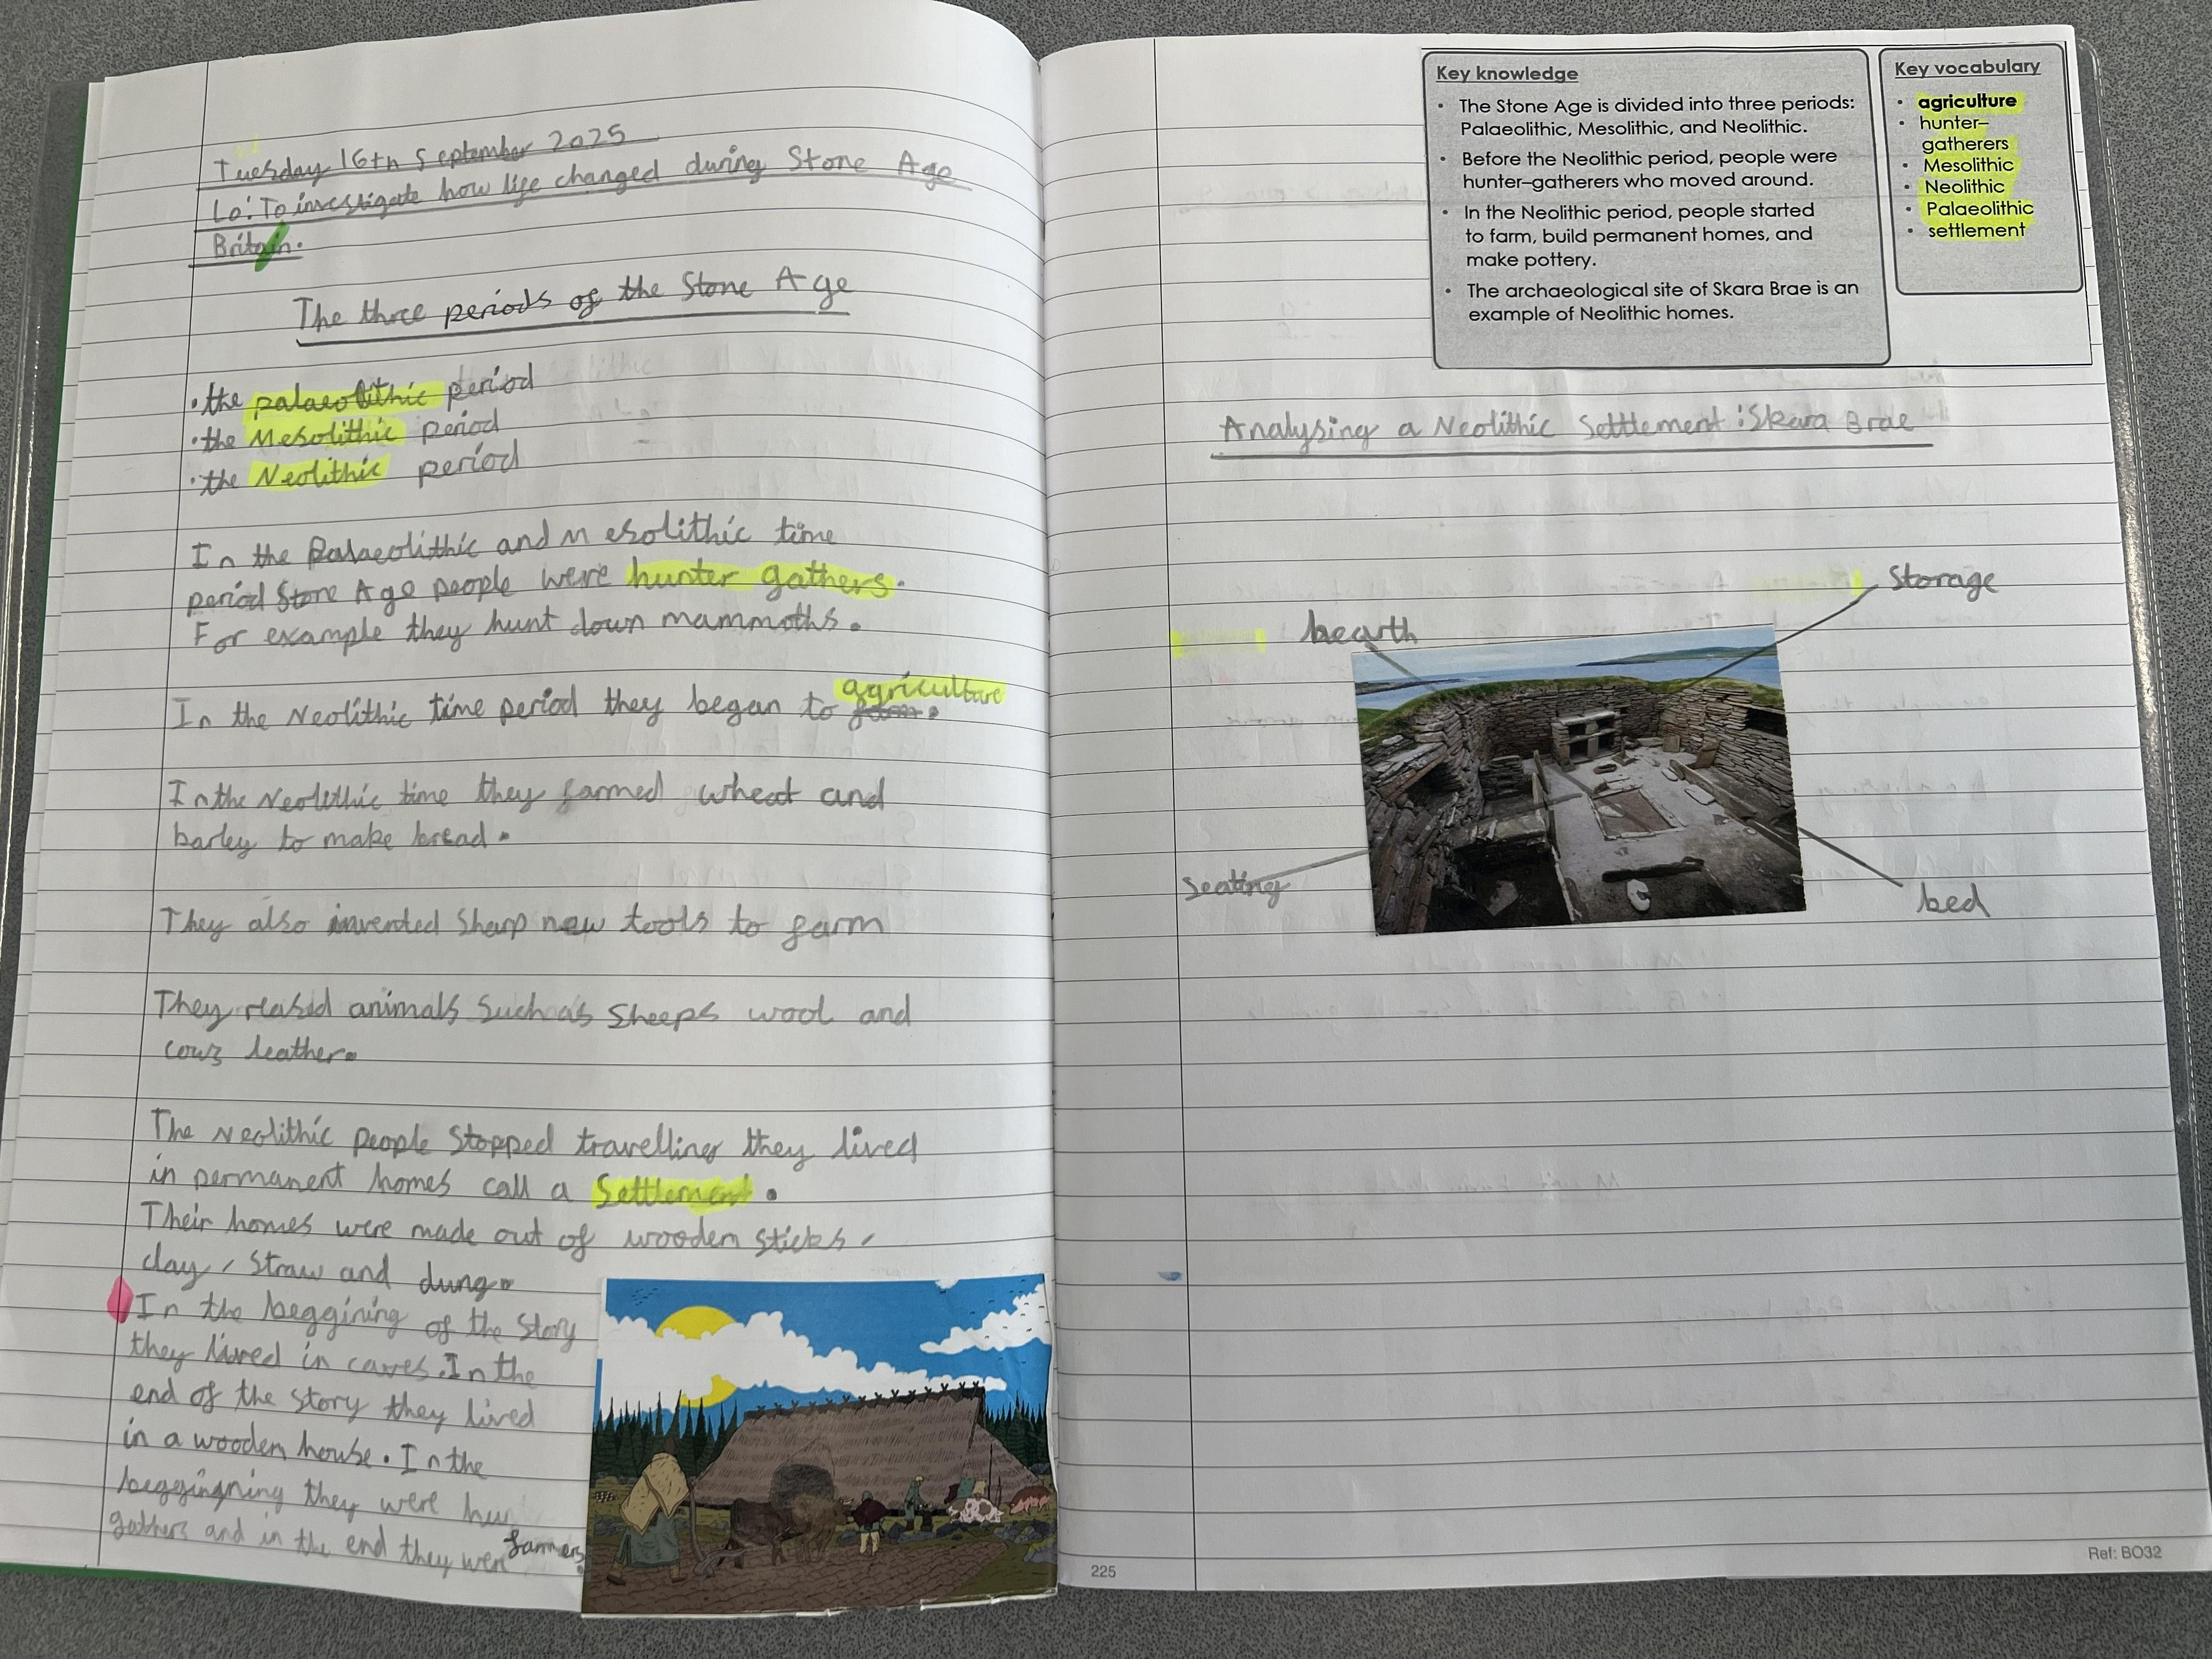 Tuesday 16th September 2025
Lo: To investigate how life changed during Stone Age
Britain.
The three periods of the Stone Age
• the palaeolithic period
• the Mesolithic period
• the Neolithic period
In the Palaeolithic and Mesolithic time
period Stone Age people were hunter gathers.
For example they hunt down mammoths.
agriculture
In the Neolithic time period they began to farm.
In the Neolithic time they farmed wheat and
barley to make bread.
They also invented sharp new tools to farm
They reased animals such as sheeps wool and
cows leather.
The Neolithic people stopped travelling they lived
in permanent homes call a settlement.
Their homes were made out of wooden sticks,
clay, straw and dung.
In the beggining of the story
they lived in caves. In the
end of the story they lived
in a wooden house. In the
beggingning they were
gathers and in the end they were farmers.
Key knowledge
• The Stone Age is divided into three periods:
Palaeolithic, Mesolithic, and Neolithic.
• Before the Neolithic period, people were
hunter–gatherers who moved around.
• In the Neolithic period, people started
to farm, build permanent homes, and
make pottery.
• The archaeological site of Skara Brae is an
example of Neolithic homes.
Key vocabulary
• agriculture
• hunter–
gatherers
• Mesolithic
• Neolithic
• Palaeolithic
• settlement
Analysing a Neolithic Settlement: Skara Brae
Storage
hearth
seating
bed
225
Ref: BO32